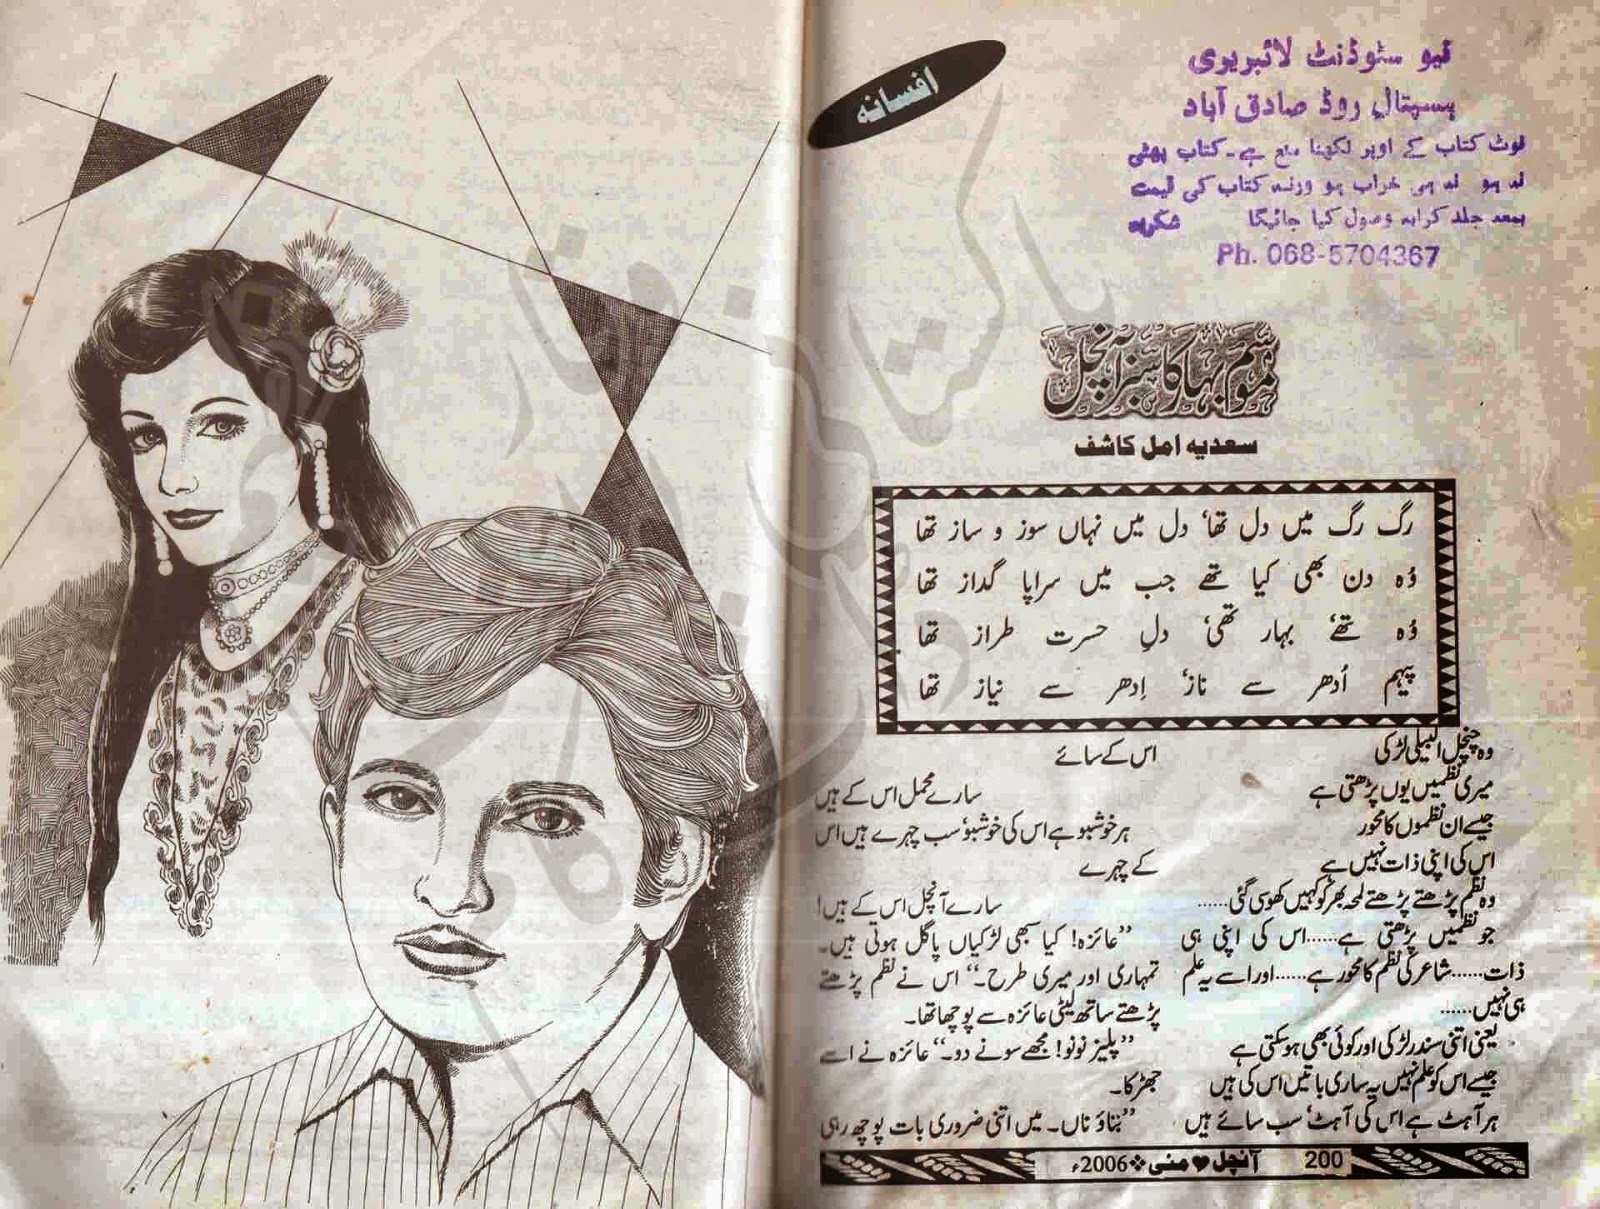 افسانہ
نیو سٹوڈنٹ لائبریری
ہسپتال روڈ صادق آباد
نوٹ کتاب کے اوپر لکھنا منع ہے۔ کتاب پھٹی
نہ ہو نہ ہی خراب ہو ورنہ کتاب کی قیمت
بمعہ جلد کرایہ وصول کیا جائیگا شکریہ
Ph. 068-5704367
موسم بہار کا سبز آنچل
سعدیہ امل کاشف
رگ رگ میں دل تھا، دل میں نہاں سوز و ساز تھا
وُہ دن بھی کیا تھے جب میں سراپا گداز تھا
وُہ تھے، بہار تھی، دلِ حسرت طراز تھا
پیہم اُدھر سے ناز، اِدھر سے نیاز تھا
وہ چنچل البیلی لڑکی
میری نظمیں یوں پڑھتی ہے
جیسے ان نظموں کا محور
اس کی اپنی ذات نہیں ہے
وہ نظم پڑھتے پڑھتے لمحہ بھر کو کہیں کھو سی گئی......
جو نظمیں پڑھتی ہے......اس کی اپنی ہی
ذات......شاعر کی نظم کا محور ہے......اور اسے یہ علم
ہی نہیں......
یعنی اتنی سندر لڑکی اور کوئی بھی ہو سکتی ہے
جیسے اس کو علم نہیں یہ ساری باتیں اس کی ہیں
ہر آہٹ ہے اس کی آہٹ، سب سائے ہیں
اس کے سائے
سارے محمل اس کے ہیں
ہر خوشبو ہے اس کی خوشبو، سب چہرے ہیں اس
کے چہرے
سارے آنچل اس کے ہیں!
”عائزہ! کیا سبھی لڑکیاں پاگل ہوتی ہیں۔
تمہاری اور میری طرح۔“ اس نے نظم پڑھتے
پڑھتے ساتھ لیٹی عائزہ سے پوچھا تھا۔
”پلیز نونو! مجھے سونے دو۔“ عائزہ نے اسے
جھڑکا۔
”بتاؤ ناں۔ میں اتنی ضروری بات پوچھ رہی
200 آنچل ♥ مئی ❖ 2006ء
پاکستانی